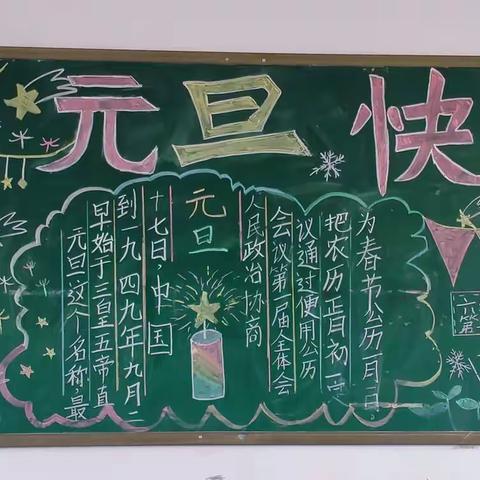 元旦快
元旦
元旦这个名称,最
早始于三皇五帝直
到一九四九年九月二
十七日,中国
人民政治协商
会议第一届全体会
议通过使用公历
把农历正月初一
为春节公历一月一日。
六
第